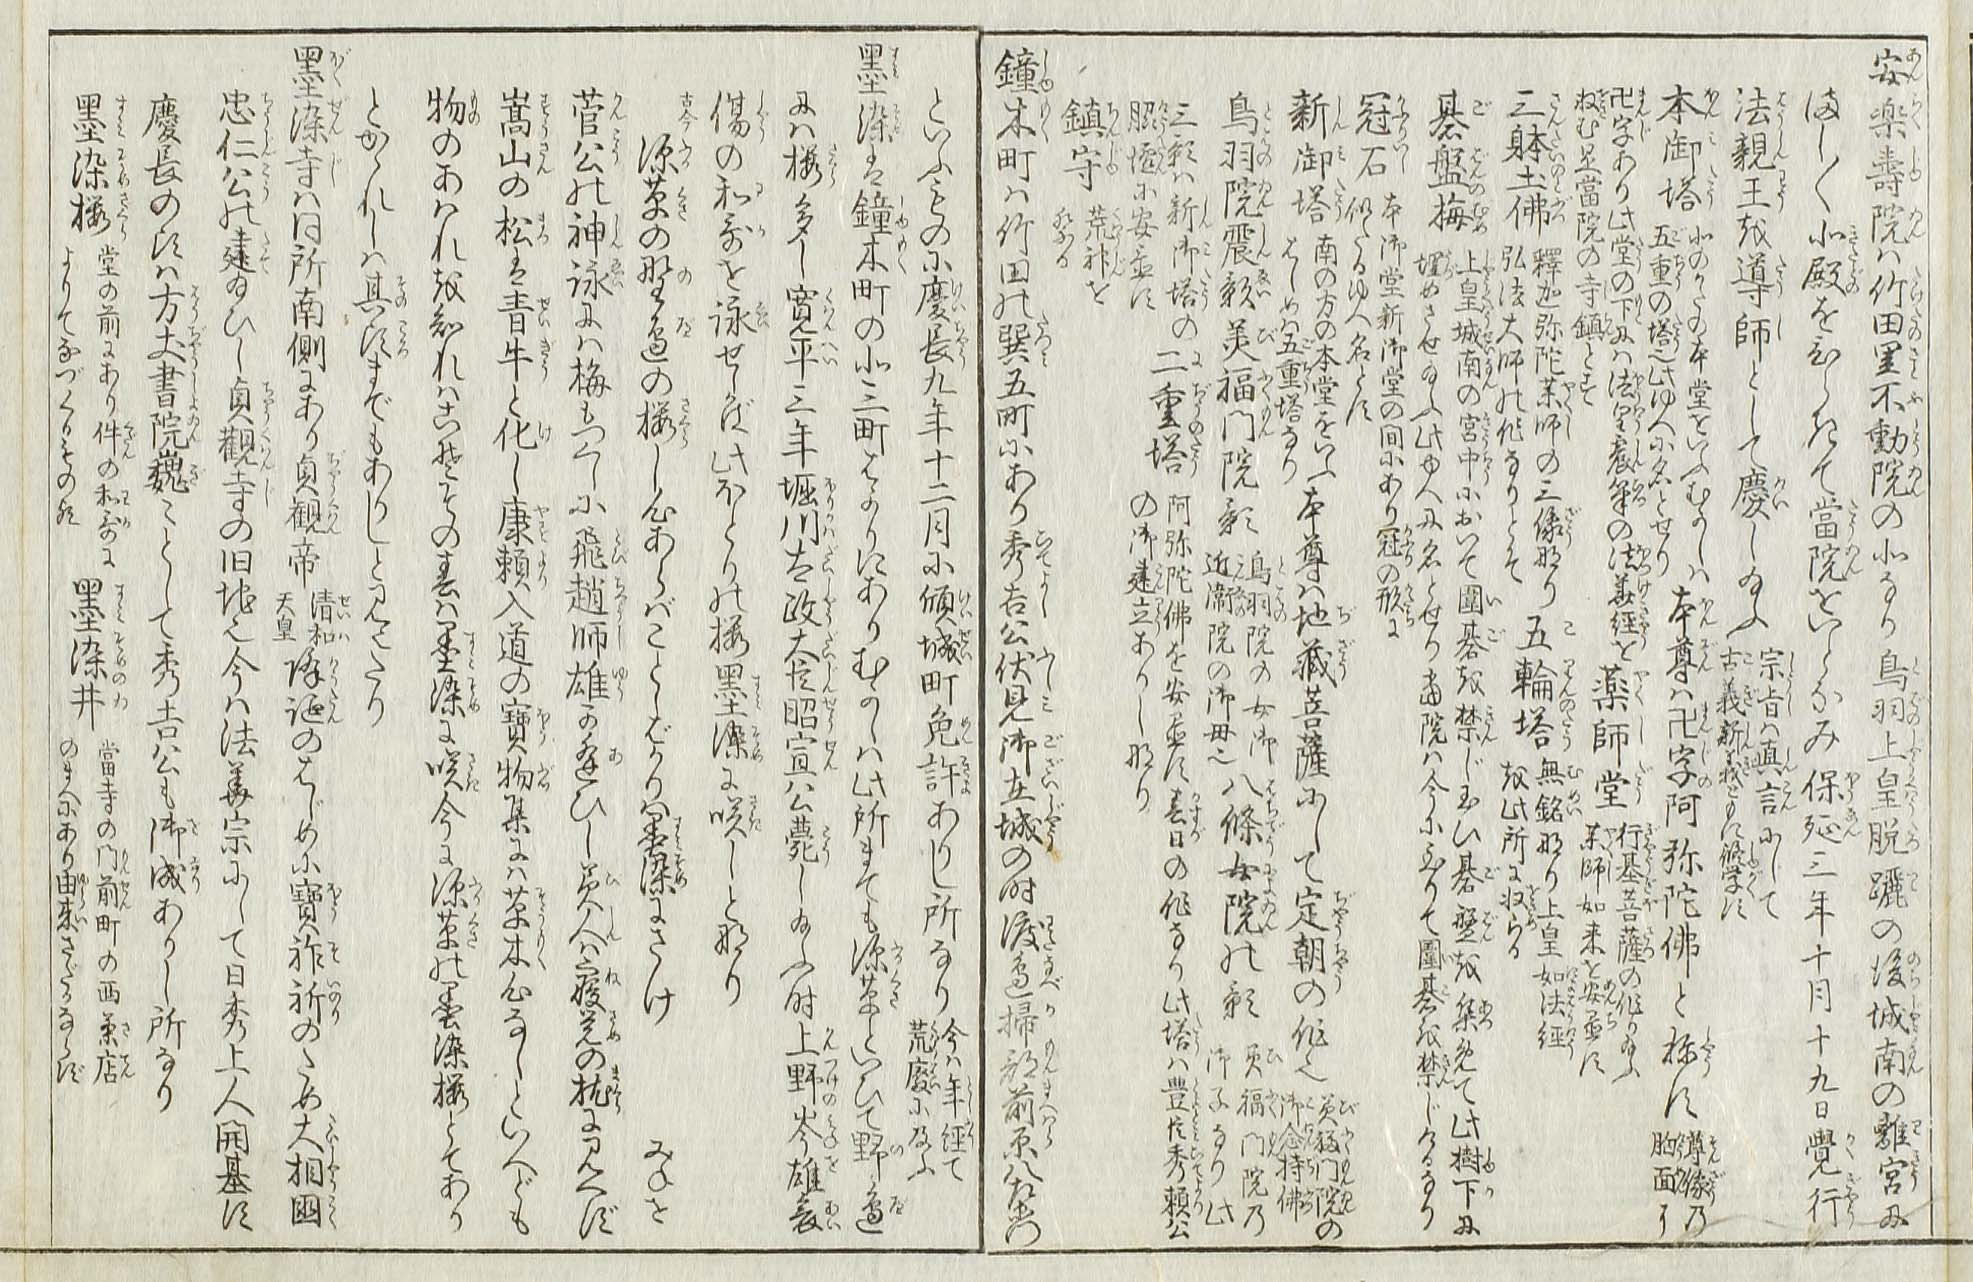 安楽壽院ハ竹田里不動院の北なり鳥羽上皇脱屣の後城南の離宮に
ましく小殿をひらきて當院をいとなみ保延三年十月十九日覺行
法親王を導師として慶し給ふ宗旨ハ真言にして古義新義ともに修学す
本御塔五重の塔也此ゆへに名とせり北のかたの本堂をいふむかしハ本尊は卍字阿弥陀佛と称す尊像乃胸面に
卍字あり此堂の下にハ法皇宸筆の法華経を
ねむ是當院の寺鎮とす薬師堂行基菩薩の作り給ふ薬師如来を安置す
三躰土佛釋迦弥陀薬師の三像なり弘法大師の作なりとそ五輪塔無銘なり上皇如法經を此所に収らる
碁盤梅上皇城南の宮中において圍碁を禁じ玉ひ碁盤を集めて此樹下に埋めさせ給ふ此ゆへに名とせり當院ハ今に至りて圍碁を禁じけるなり
冠石本御堂新御堂の間にあり冠の形に似たるゆへ名とす
新御塔南の方の本堂をいふはしめハ五重塔なり本尊ハ地藏菩薩にして定朝の作也美福門院の御念持佛
鳥羽院震影美福門院影鳥羽院の女御近衛院の御母也八條女院の影美福門院乃御子なり此
三影ハ新御塔の脇檀に安置す二重塔阿弥陀佛を安置す春日の作なり此塔ハ豊臣秀頼公の御建立ありし也
鎮守荒神を祭る
鐘木町ハ竹田の巽五町にあり秀吉公伏見御在城の時渡邉掃部前原八右衛門
といふものに慶長九年十二月に傾城町免許ありし所なり今ハ年經て荒廢に及ふ
墨染は鐘木町の北三町はかりにありむかしハ此所まても深草といひて野邉
にハ桜多し寛平三年堀川太政大臣昭宣公薨し給ふ時上野岑雄哀
傷の和哥を詠せしかば此ほとりの桜墨染に咲しとなり
古今深草の野邉の桜し心あらばことしばかりハ墨染にさけみねを
菅公の神詠にハ梅もつくしに飛趙師雄の逢ひし美人ハ寝覚の枕に見へず
嵩山の松は青牛と化し康頼入道の寶物集にハ草木心なしといへども
物のあはれを知れハこそその春ハ墨染に咲今に深草の墨染桜とてあり
とかゝれしハ其頃までもありしと見へたり
墨染寺ハ同所南側にあり貞観帝清和天皇降誕のはじめに寶祚祈のため大相國
忠仁公の建給ひし貞觀寺の旧地也今ハ法華宗にして日秀上人開基す
慶長の頃ハ方丈書院巍ことして秀吉公も御成ありし所なり
墨染桜堂の前にあり件の和哥によりてなづくるもの也墨染井當寺の門前町の西茶店のまへにあり由来さだかならず